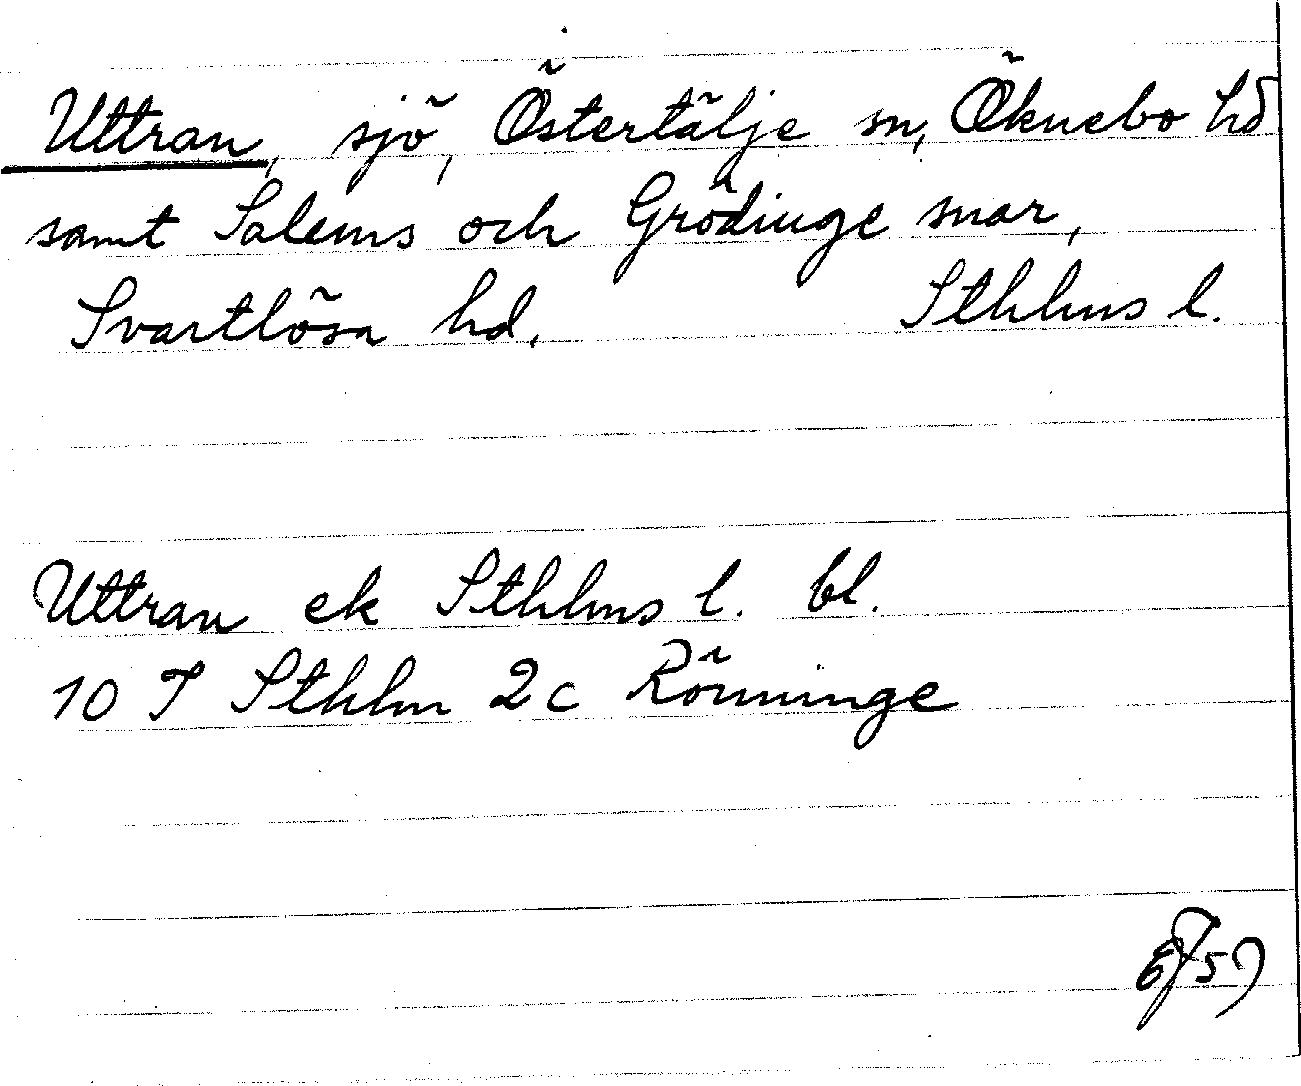 Uttran, sjö, Östertälje sn, Öknebo hd
samt Salems och Grödinge snar,
Svartlösa hd. Sthlms l.
Uttran ek Sthlms l. bl.
10 I Sthlm 2 c Rönninge